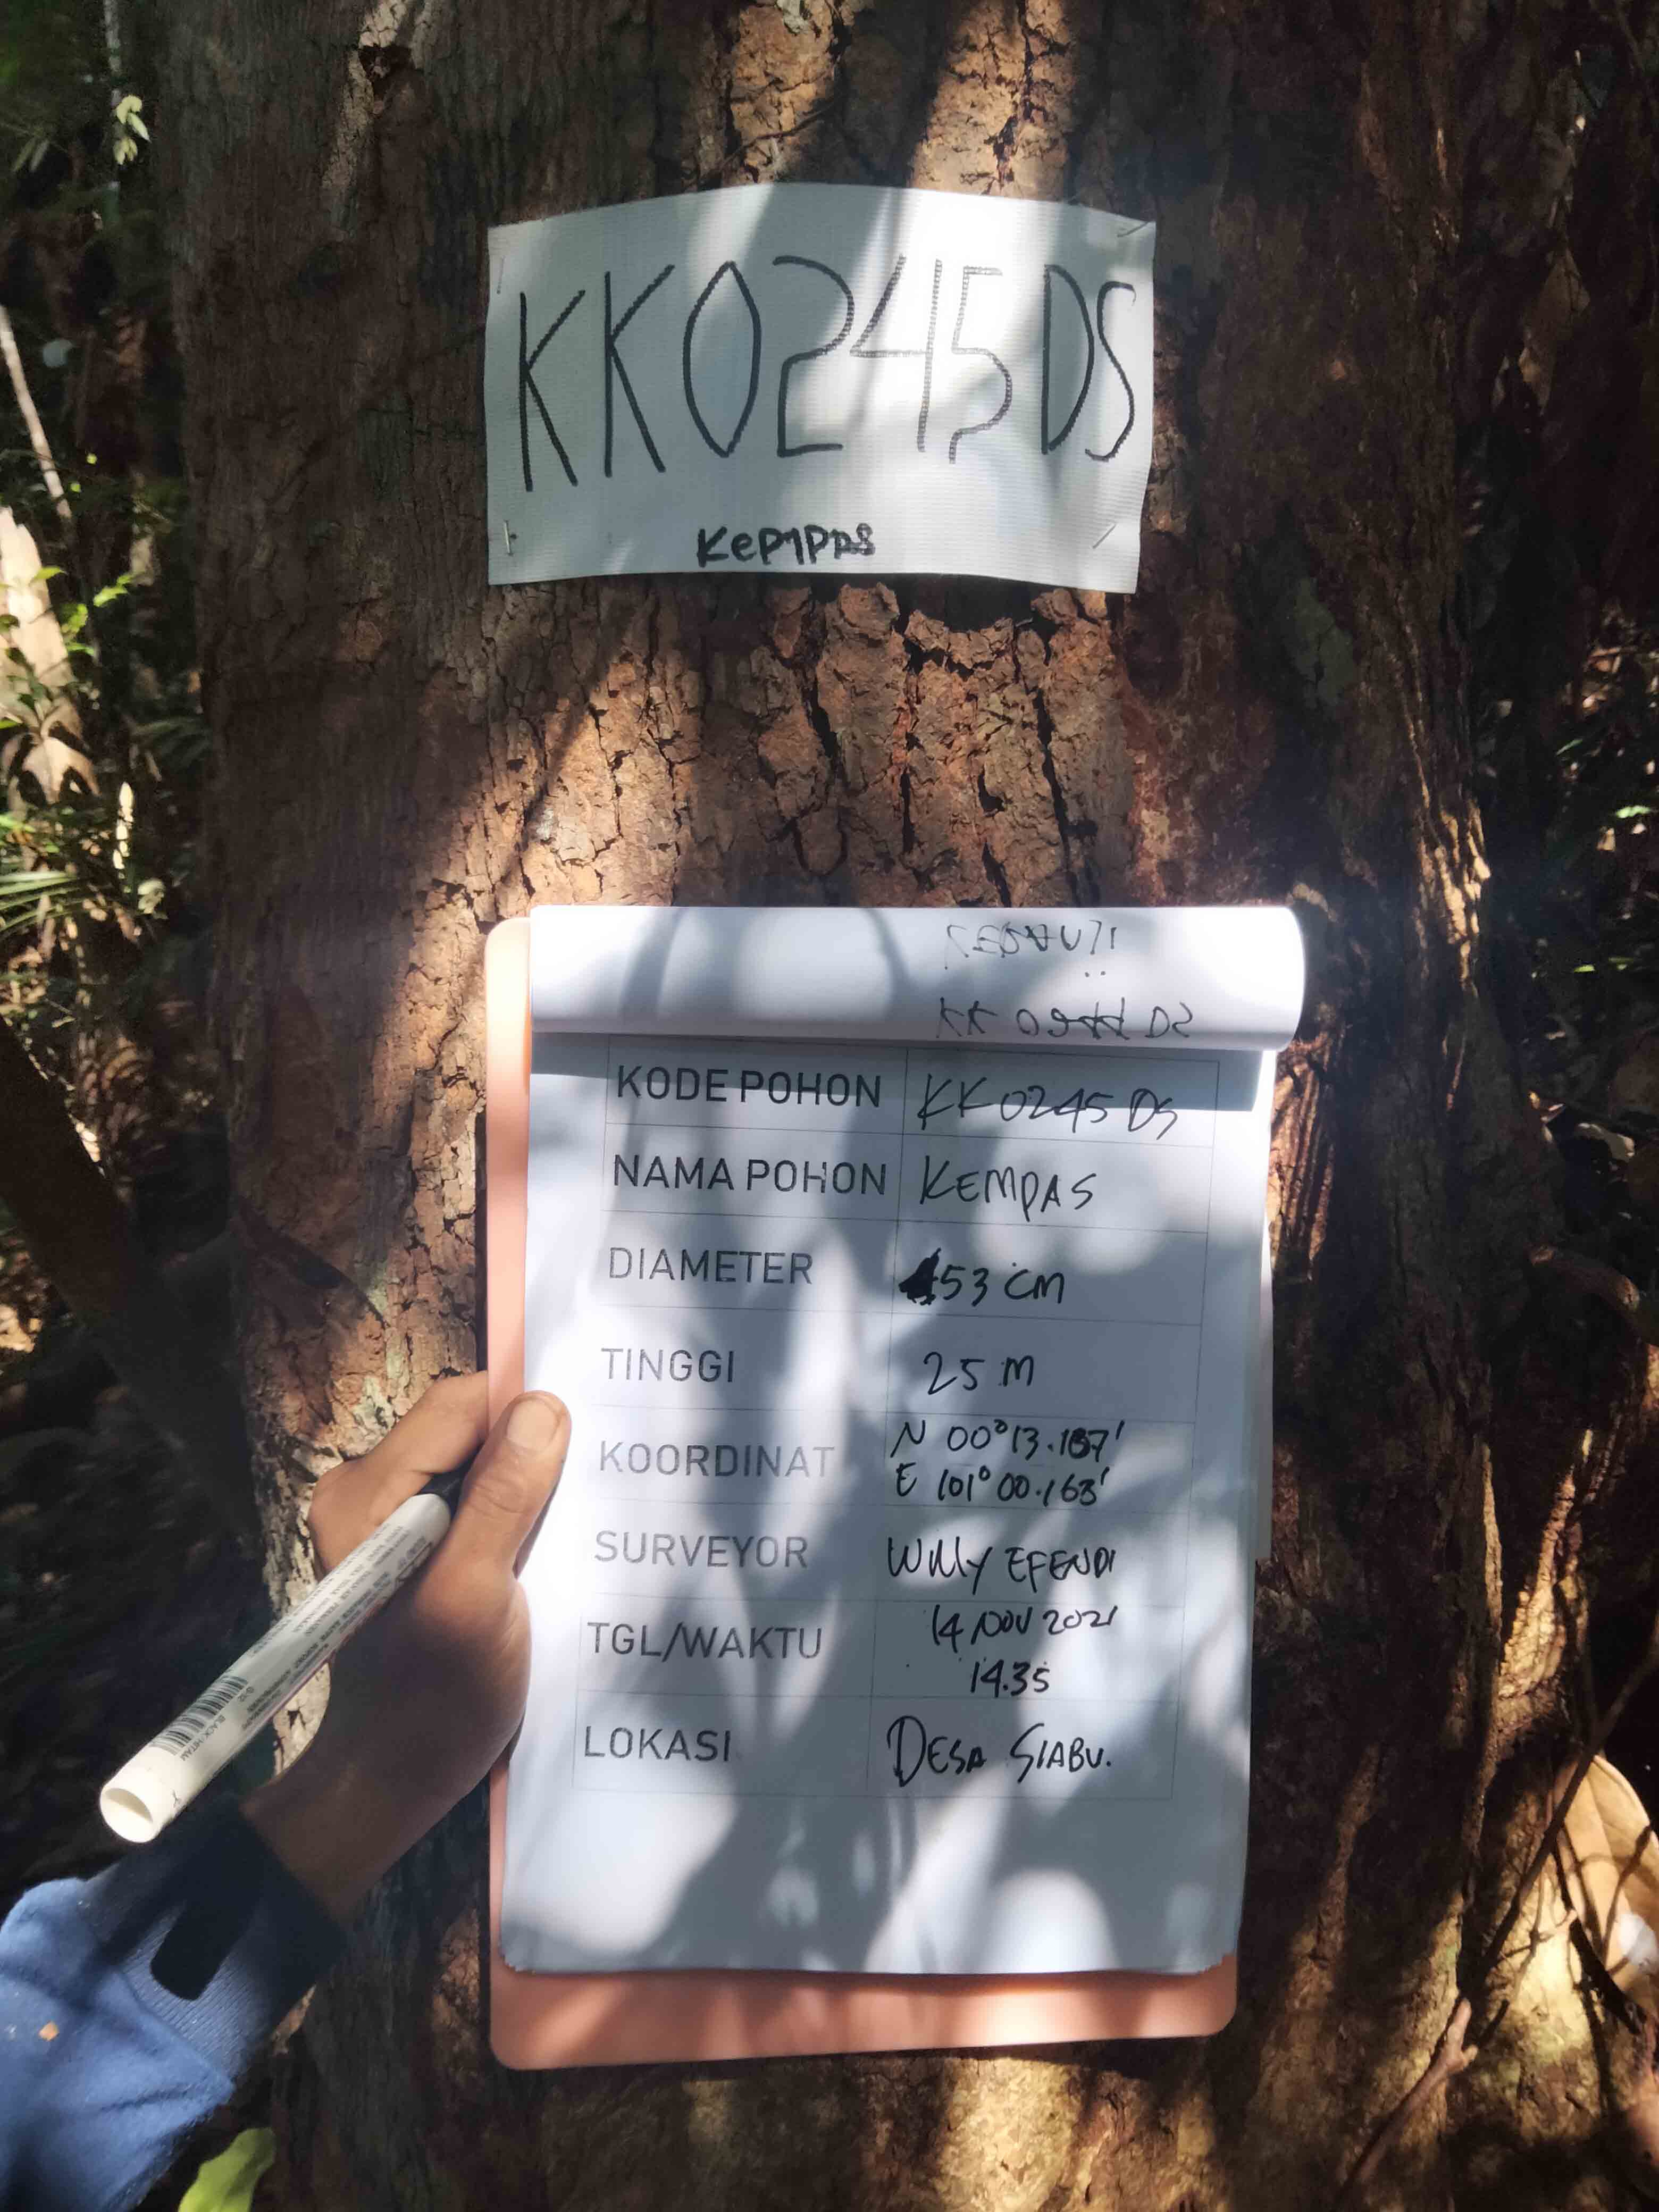 KK0245DS
Kempas
KODE POHON KK0245 DS
NAMA POHON KEMPAS
DIAMETER 53 cm
TINGGI 25 M
KOORDINAT N 00°13.187'
E 101°00.163'
SURVEYOR Willy EFENDI
TGL/WAKTU 14 NOV 2021
14.35
LOKASI DESA SIABU.
BLACK-HITAM